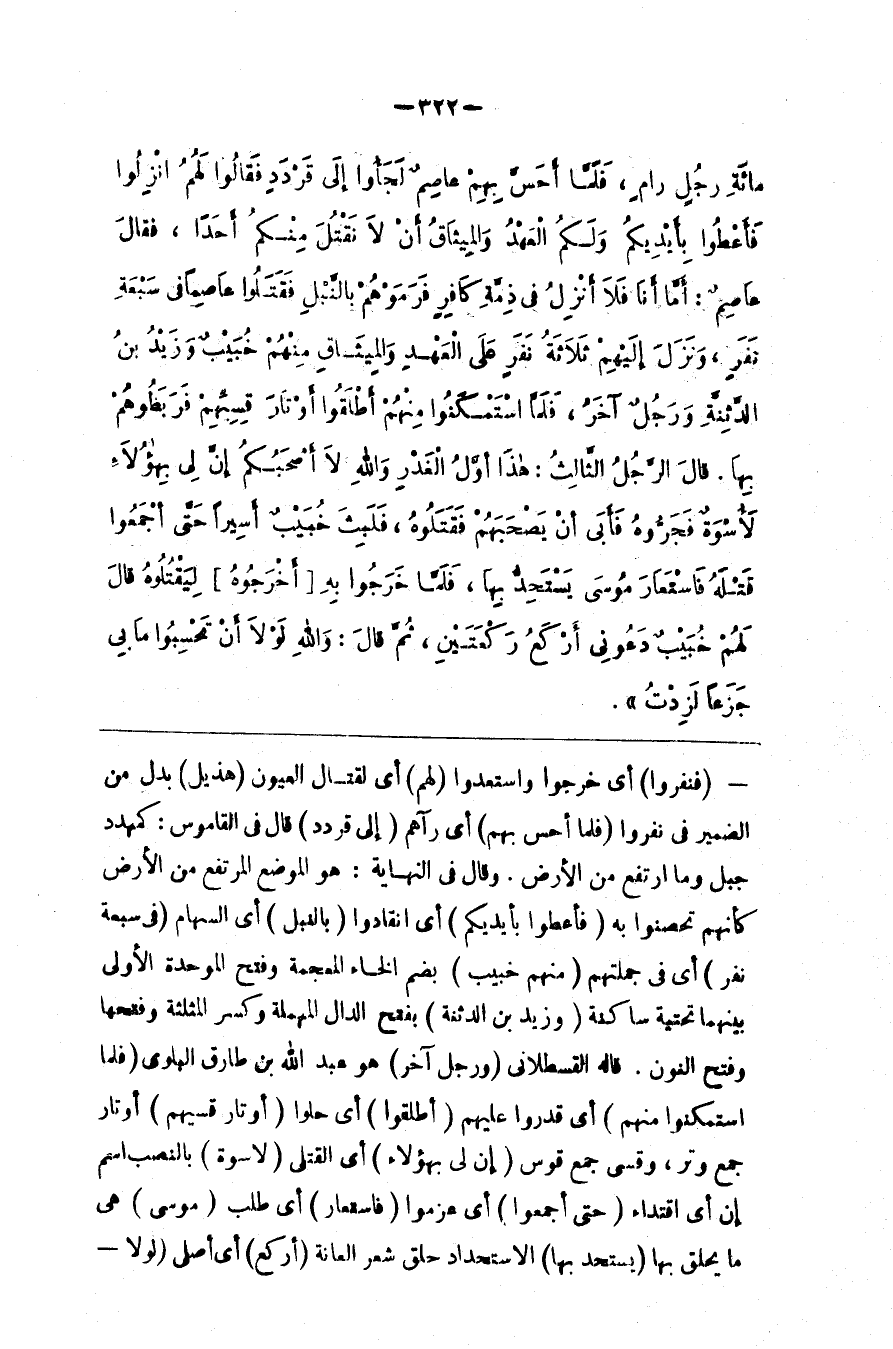 -٣٢٢-
مائَةِ رجُلٍ رامٍ ، فَلَمَّا أَحَسَّ بِهِمْ عاصِمٌ لَجَأُوا إلَى قَرْدَدٍ فَقَالُوا لَهُمُ انْزِلُوا
فَأَعْطُوا بِأَيْدِيكُمْ وَلَكُمُ الْعَهْدُ وَالمِيثاقُ أَنْ لاَ نَقْتُلَ مِنْكُمْ أَحَدًا ، فقالَ
عاصِمٌ : أَمَّا أَنا فَلاَ أَنْزِلُ فى ذِمَّةِ كَافِرٍ فَرَمَوْهُمْ بالنَّبْلِ فَقَتَلُوا عاصِماً فى سَبْعَةِ
نَفَرٍ ، وَنَزَلَ إلَيْهِمْ ثَلاَثَةُ نَفَرٍ عَلَى الْعَهْدِ وَالمِيثَاقِ مِنْهُمْ خُبَيْبٌ وَزَيْدُ بنُ
الدَّثِنَةِ وَرَجُلٌ آخَرُ ، فَلَمَّا اسْتَمْكَنُوا مِنْهُمْ أَطْلَقُوا أَوْتارَ قِسِيِّهِمْ فَرَبَطُوهُمْ
بِهاَ . قالَ الرَّجُلُ الثَّالِثُ : هٰذَا أوَّلُ الْغَدْرِ وَاللهِ لاَ أَصْحَبُكُمْ إنَّ لِى بِهٰؤُلاَءِ
لَأُسْوَةً فَجَرُّوهُ فَأَبَى أنْ يَصْحَبَهُمْ فَقَتَلُوهُ ، فَلَبِثَ خُبَيْبٌ أَسِيراً حَتَّى أجْمَعُوا
قَتْلَهُ فَاسْتَعَارَ مُوسَى يَسْتَحِدُّ بِهاَ ، فَلَمَّا خَرَجُوا بِهِ [ أَخْرَجُوهُ ] لِيَقْتُلُوهُ قالَ
لَهُمْ خُبَيْبٌ دَعُونِى أَرْكَعُ رَكْعَتَيْنِ ، ثُمَّ قالَ : وَاللهِ لَوْلاَ أَنْ تَحْسِبُوا ما بِى
جَزَعاً لَزِدْتُ » .
— (فنفروا) أى خرجوا واستعدوا (لهم) أى لقتال العيون (هذيل) بدل من
الضمير فى نفروا (فلما أحس بهم) أى رآهم ( إلى قردد ) قال فى القاموس : كمهدد
جبل وما ارتفع من الأرض . وقال فى النهاية : هو الموضع المرتفع من الأرض
كأنهم تحصنوا به ( فأعطوا بأيديكم ) أى انقادوا ( بالنبل ) أى السهام (فى سبعة
نفر ) أى فى جملتهم ( منهم خبيب ) بضم الخاء المعجمة وفتح الموحدة الأولى
بينهما تحتية ساكنة ( وزيد بن الدثنة ) بفتح الدال المهملة وكسر المثلثة وفتحها
وفتح النون . قاله القسطلانى (ورجل آخر) هو عبد الله بن طارق البلوى (فلما
استمكنوا منهم ) أى قدروا عليهم ( أطلقوا ) أى حلوا ( أوتار قسيهم ) أوتار
جمع وتر ، وقسى جمع قوس ( إن لى بهؤلاء ) أى القتلى ( لاسوة ) بالنصب اسم
إن أى اقتداء ( حتى أجمعوا ) أى عزموا ( فاستعار ) أى طلب ( موسى ) هى
ما يحلق بها (يستحد بها) الاستحداد حلق شعر العانة (أركع) أى أصلى (لولا —